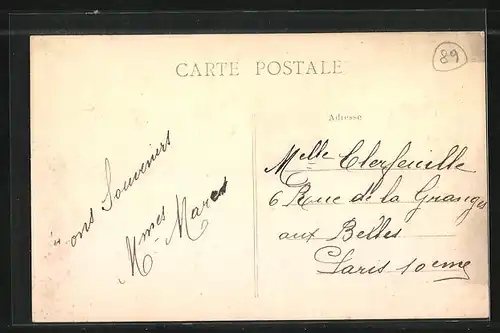 CARTE POSTALE
89
Adresse
Bons Souvenirs
Mmes Mares
Melle Clerfeuille
6 Rue de la Granges
aux Belles
Paris 10eme